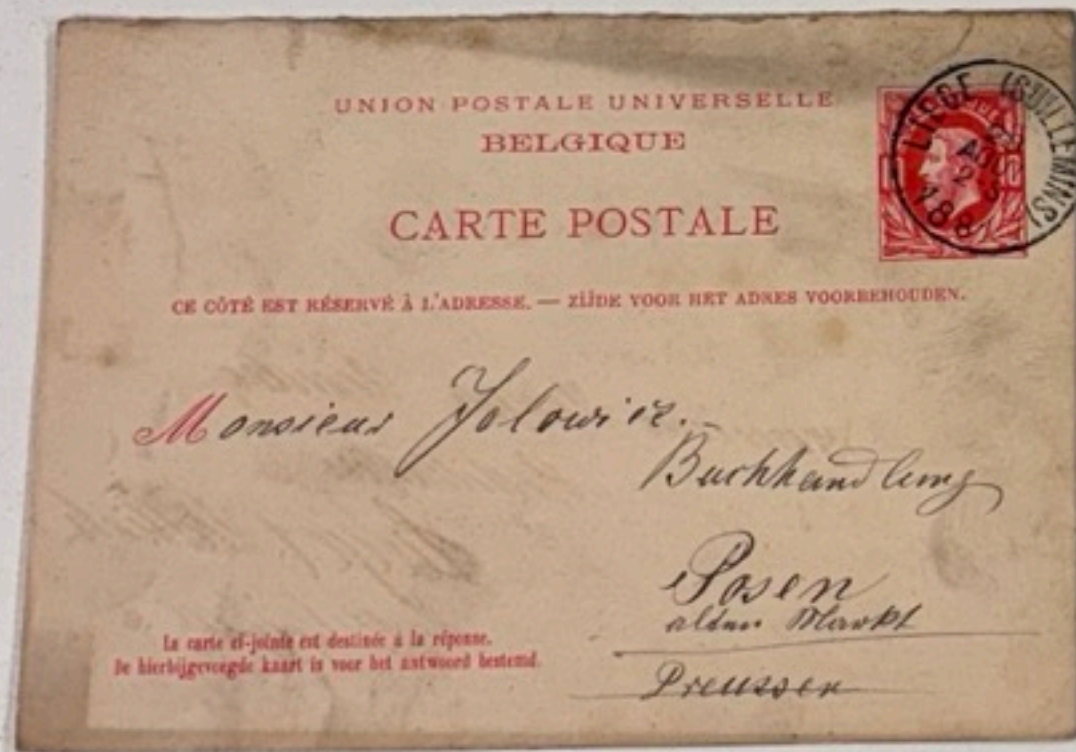 UNION POSTALE UNIVERSELLE
BELGIQUE
CARTE POSTALE
LIEGE (GUILLEMINS)
AOUT
188
10
CE CÔTÉ EST RÉSERVÉ À L'ADRESSE. — ZIJDE VOOR HET ADRES VOORBEHOUDEN.
Monsieur Jolowicz.
Buchhandlung
Posen
alten Markt
Preussen
La carte ci-jointe est destinée à la réponse.
De hierbijgevoegde kaart is voor het antwoord bestemd.